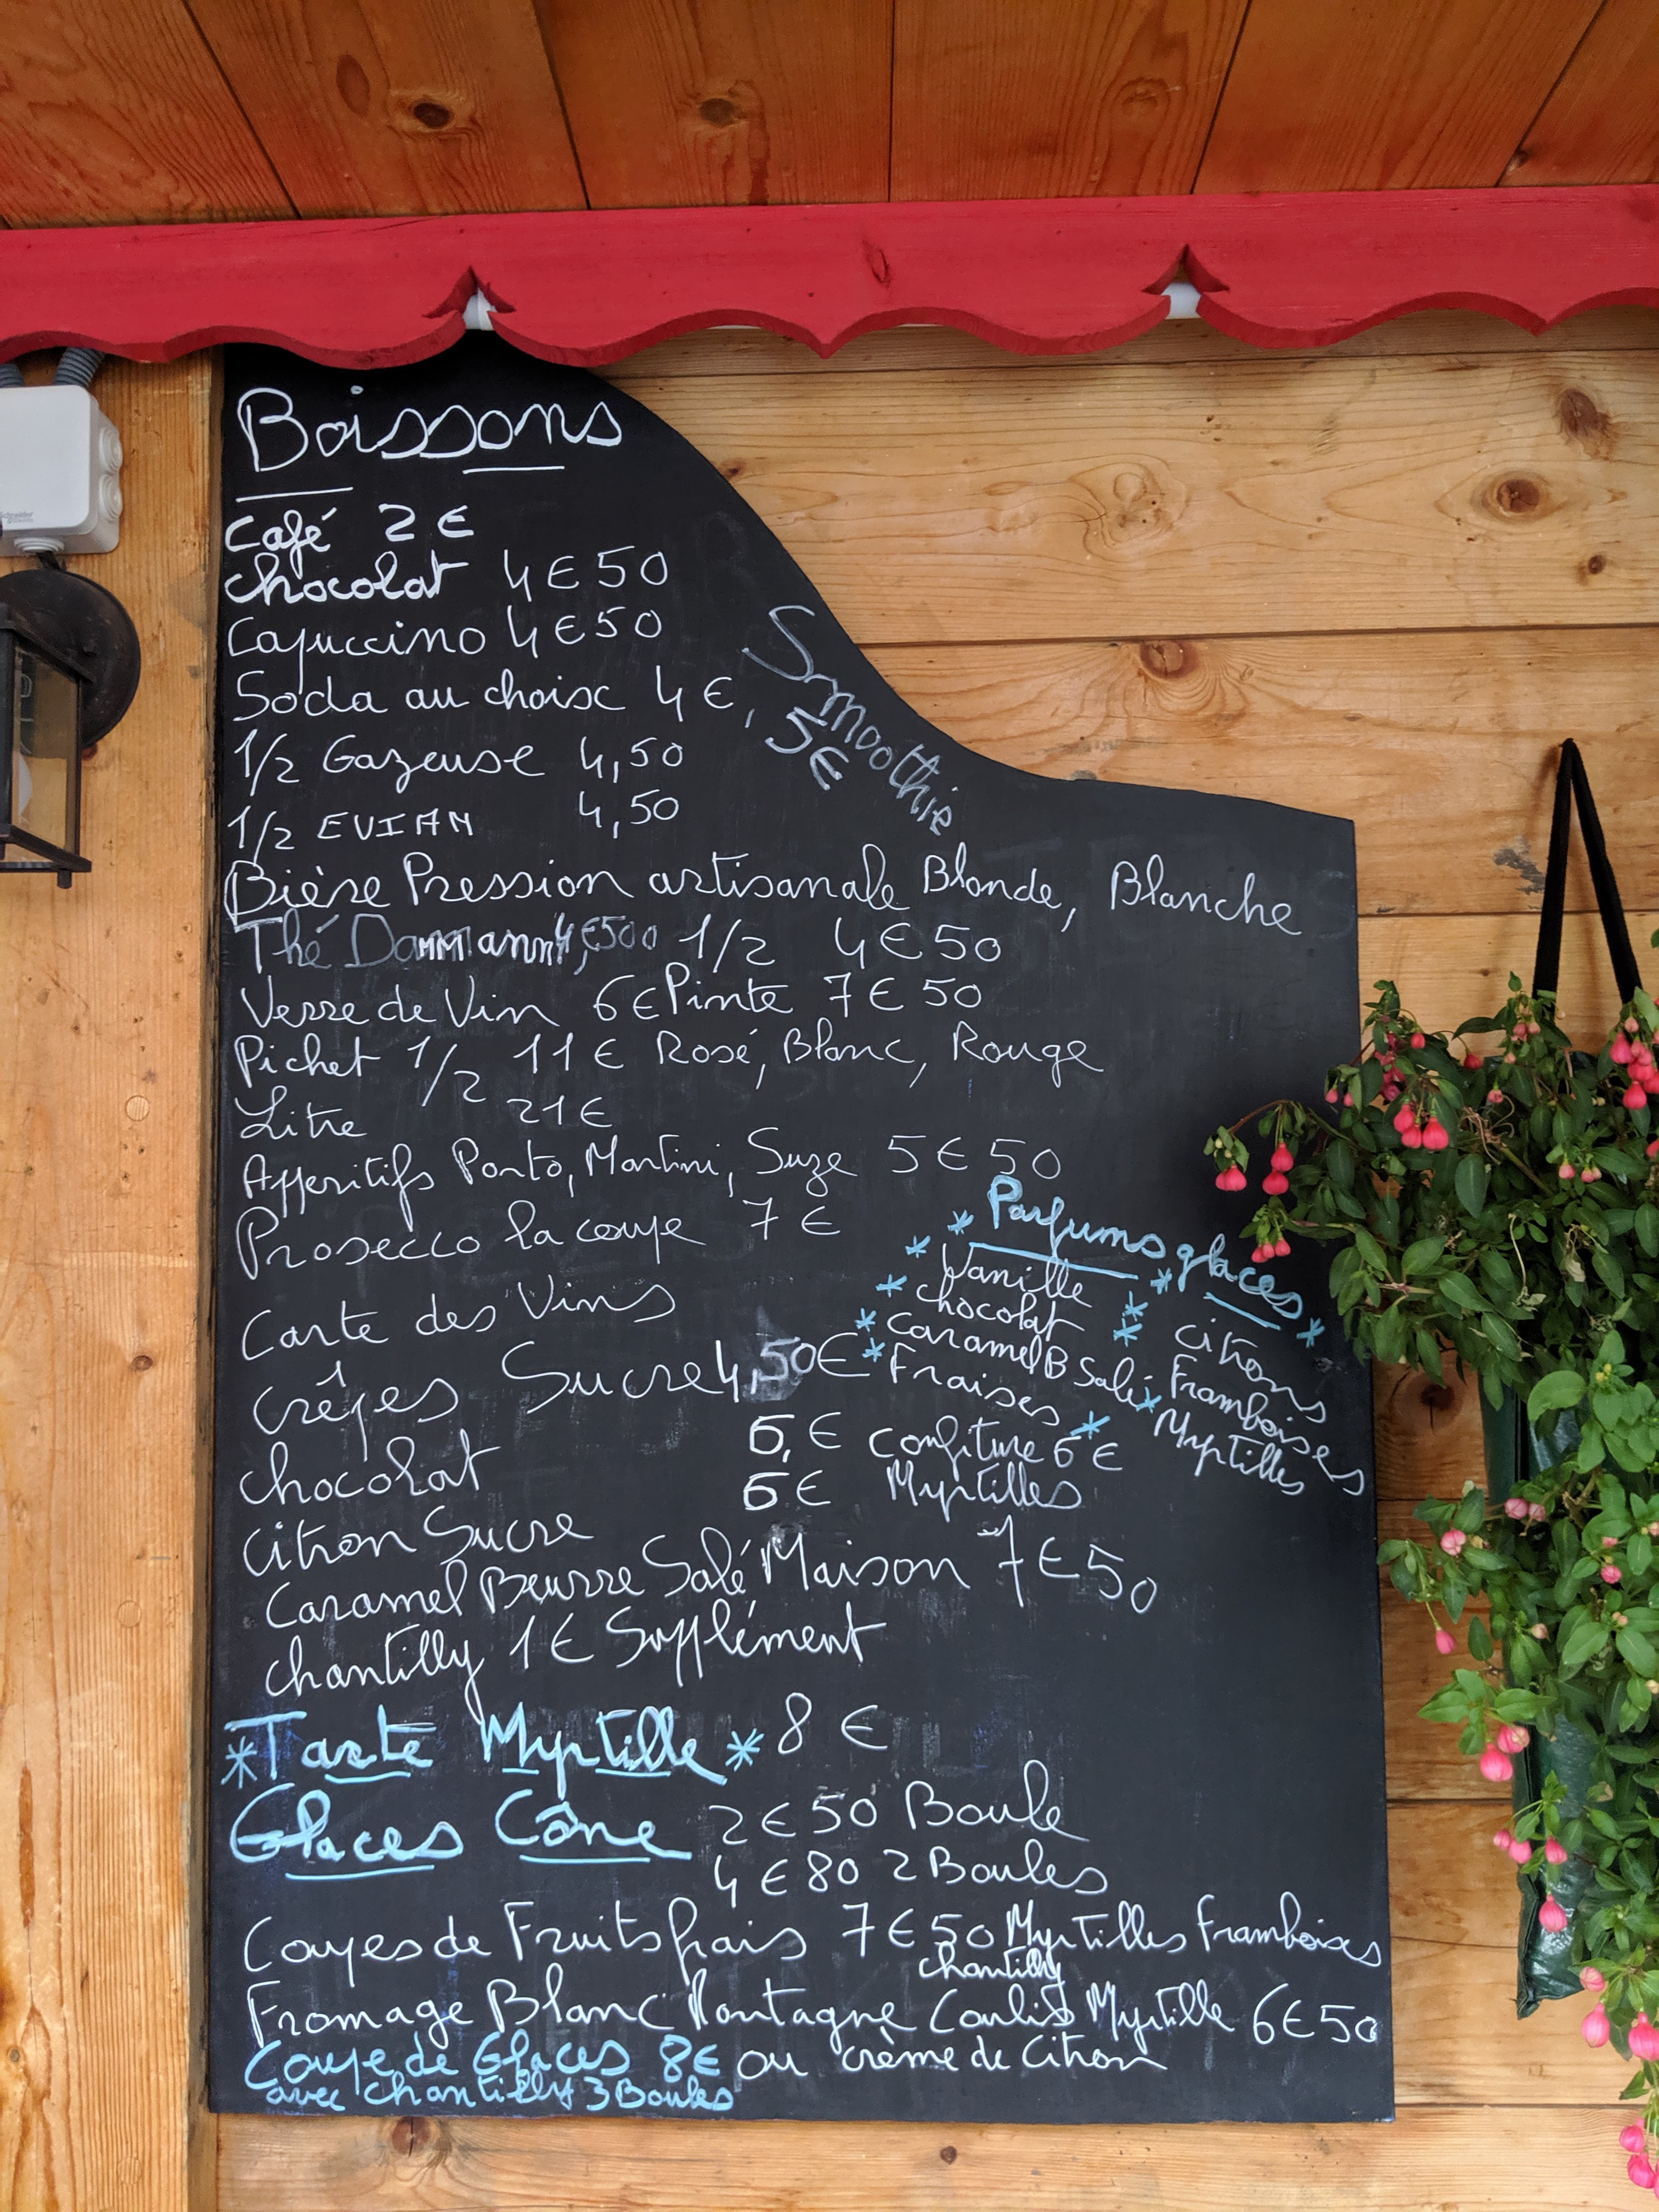 Boissons
Café 2€
chocolat 4€50
Capuccino 4€50
Soda au choix 4€,
Smoothie
5€
1/2 Gazeuse 4,50
1/2 EVIAN 4,50
Bière Pression artisanale Blonde, Blanche
Thé Dammann 4,€50 1/2 4€50
Verre de Vin 6€ Pinte 7€50
Pichet 1/2 11€ Rosé, Blanc, Rouge
Litre 21€
Apperitifs Porto, Martini, Suze 5€50
Prosecco la coupe 7€
Carte des Vins
Crêpes Sucre 4,50€
chocolat 6,€ confiture 6€
Citron Sucre 6€ Myrtilles
Caramel Beurre Salé Maison 7€50
chantilly 1€ Supplément
* Parfums glaces *
* Vanille
* chocolat
* Caramel B Salé
* Fraises *
* Citrons
* Framboises
* Myrtilles
*Tarte Myrtille* 8€
Glaces Cône 2€50 Boule
4€80 2 Boules
Coupes de Fruits frais 7€50 Myrtilles Framboises
chantilly
Fromage Blanc Montagne Coulis Myrtille 6€50
Coupe de Glaces 8€ ou crème de Citron
avec chantilly 3 Boules
Schneider